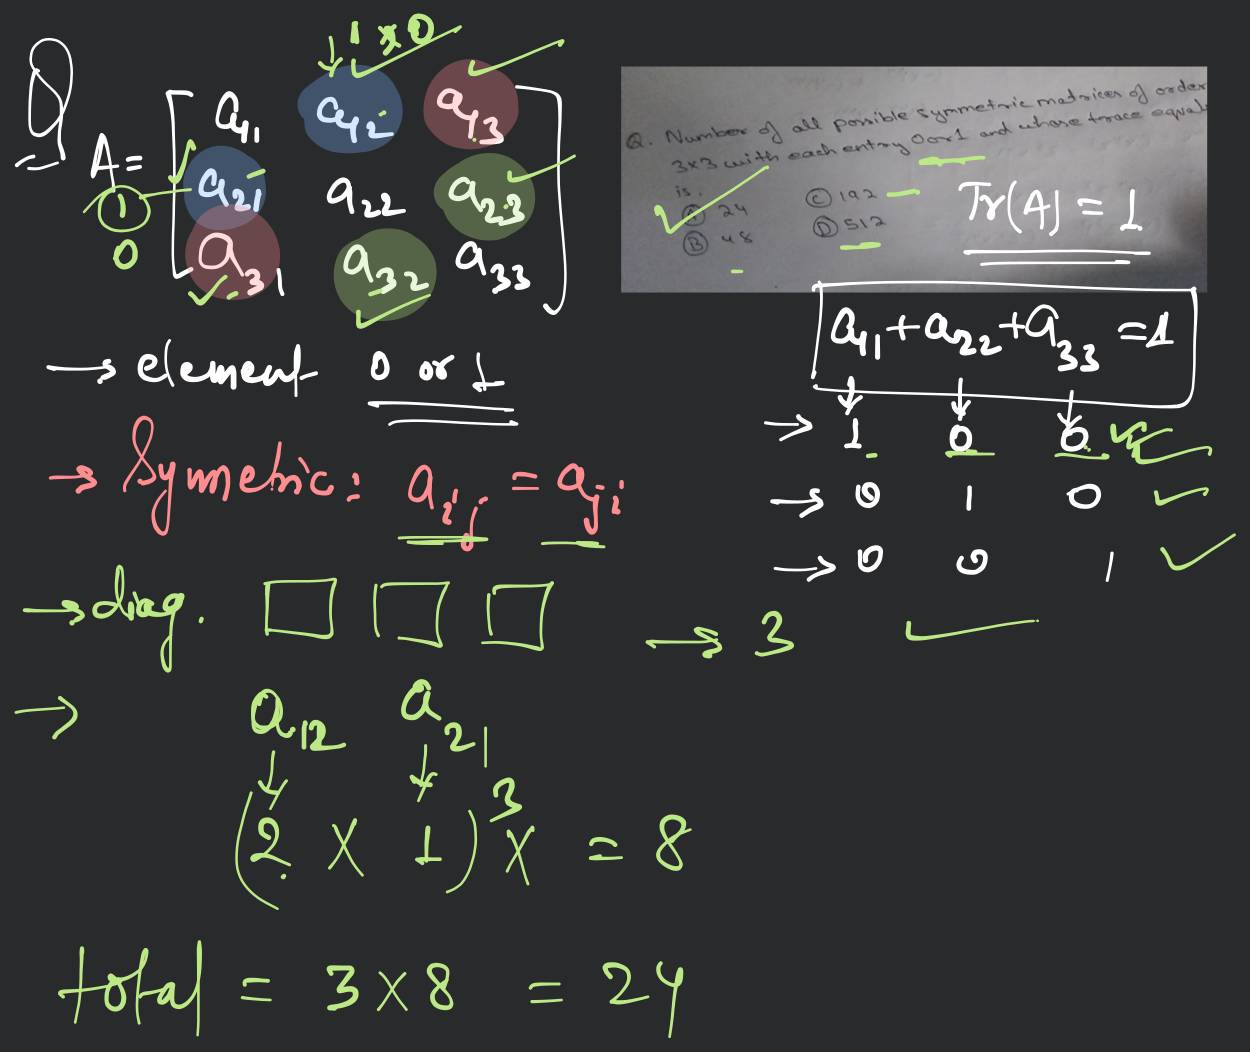 Q
1 x 0
A = [ a11 a12 a13
1 a21 a22 a23
0 a31 a32 a33 ]
Q. Number of all possible symmetric matrices of order
3x3 with each entry 0 or 1 and whose trace equal
is.
(A) 24 (C) 192
(B) 48 (D) 512
Tr(A) = 1
a11 + a22 + a33 = 1
→ 1 0 0
→ 0 1 0
→ 0 0 1
→ element 0 or 1
→ Symetric: aij = aji
→ diag. → 3
→ a12 a21
(2 x 1)^3 x = 8
total = 3 x 8 = 24